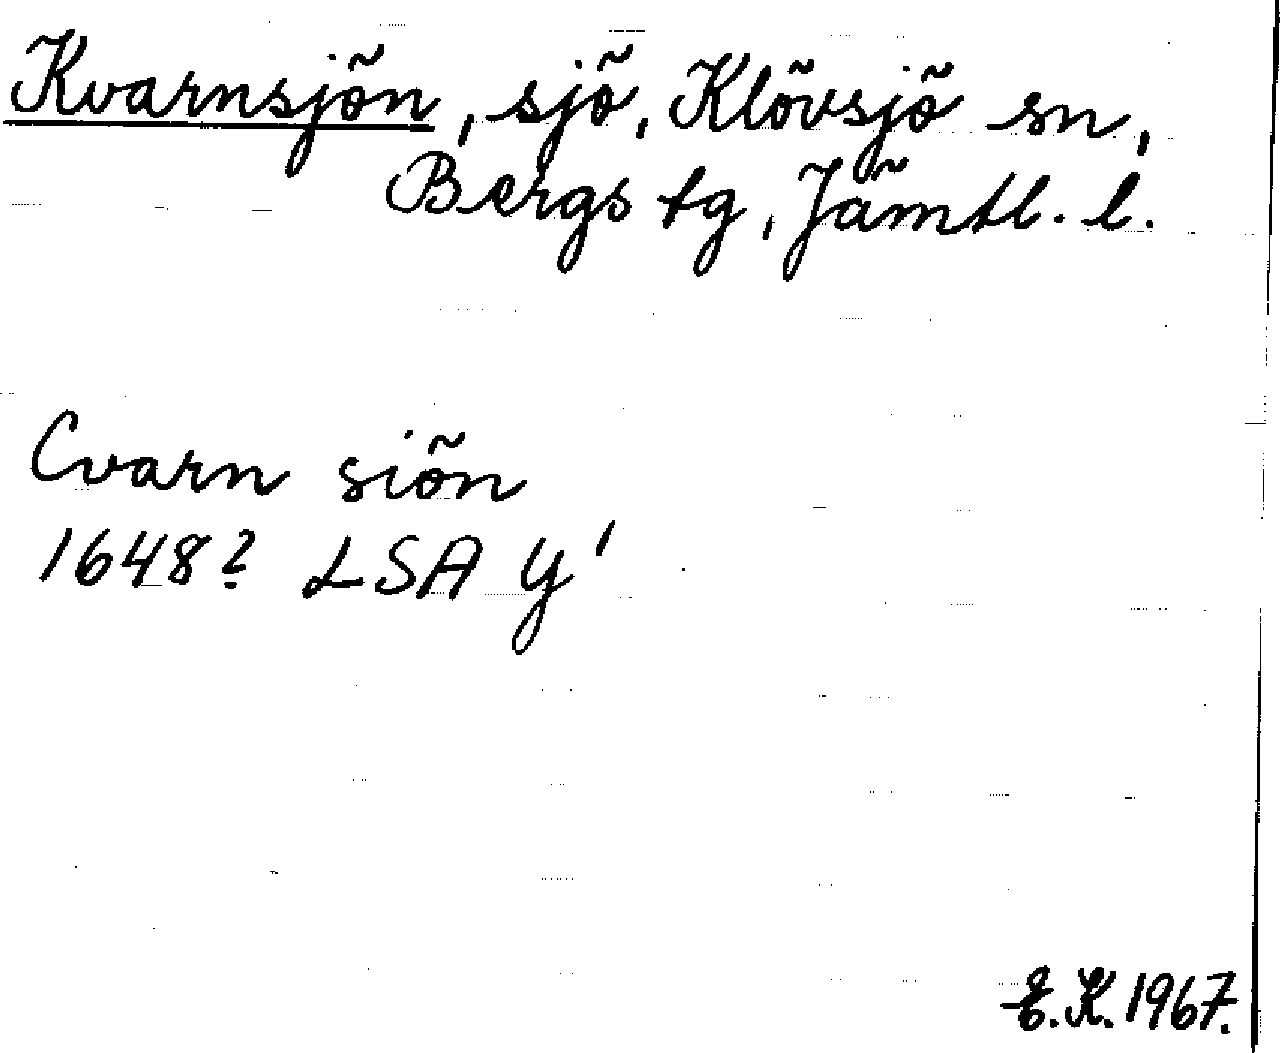 Kvarnsjön, sjö, Klövsjö sn,
Bergs tg, Jämtl. l.
Cvarn siön
1648? LSA Y¹
E.K. 1967.